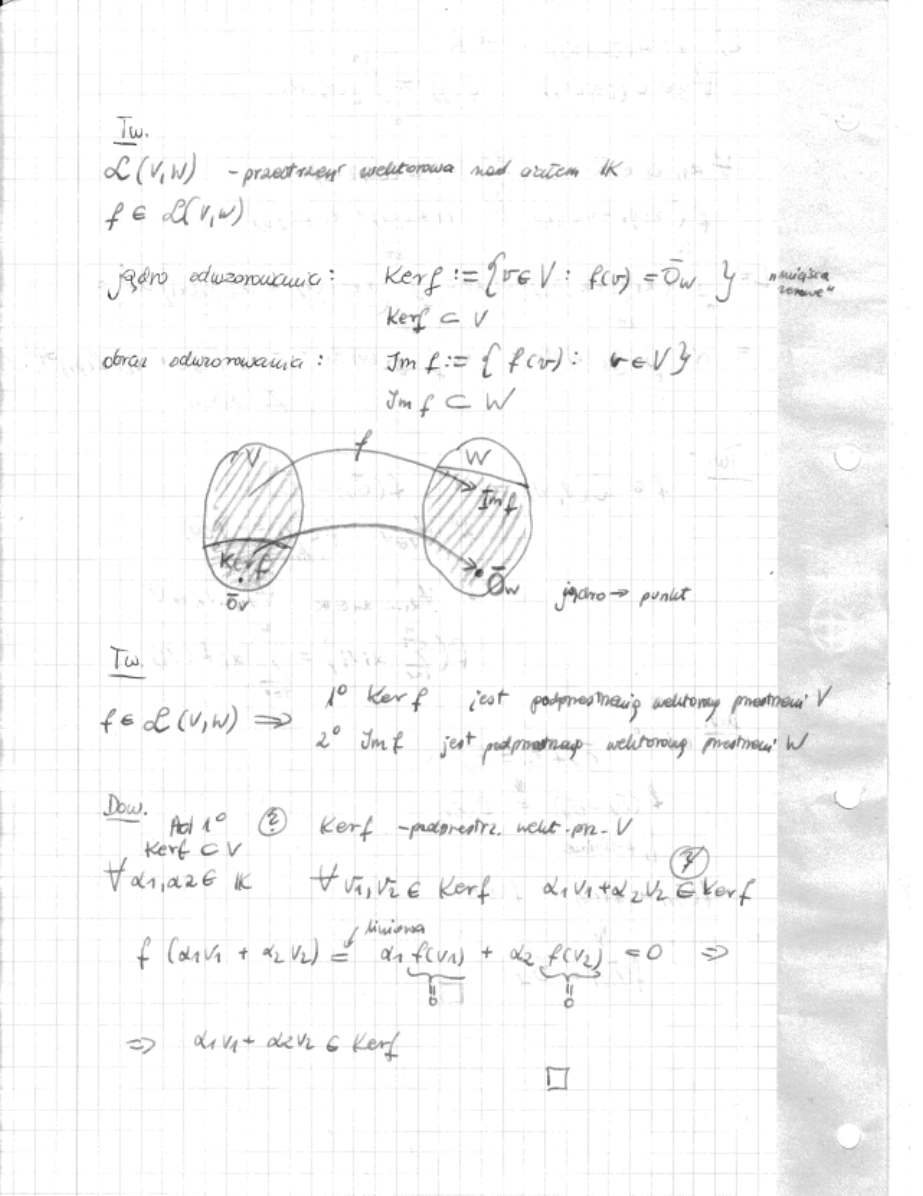 Tw.
ℒ(V,W) - przestrzeń wektorowa nad ciałem IK
f ∈ ℒ(V,W)
jądro odwzorowania : Ker f := { v ∈ V : f(v) = Ō_W } "miejsca
zerowe"
Ker f ⊂ V
obraz odwzorowania : Im f := { f(v) : v ∈ V }
Im f ⊂ W
V f W
Im f
Ker f
Ō_V Ō_W
jądro → punkt
Tw.
f ∈ ℒ(V,W) ⇒ 1° Ker f jest podprzestrzenią wektorową przestrzeni V
2° Im f jest podprzestrzenią wektorową przestrzeni W
Dow.
Ad 1° ? Ker f - podprzestrz. wekt. prz. V
Ker f ⊂ V
∀ α1, α2 ∈ IK ∀ v1, v2 ∈ Ker f α1v1 + α2v2 ∈ Ker f ?
liniowa
f (α1v1 + α2v2) = α1 f(v1) + α2 f(v2) = 0 ⇒
= 0 = 0
⇒ α1v1 + α2v2 ∈ Ker f
□